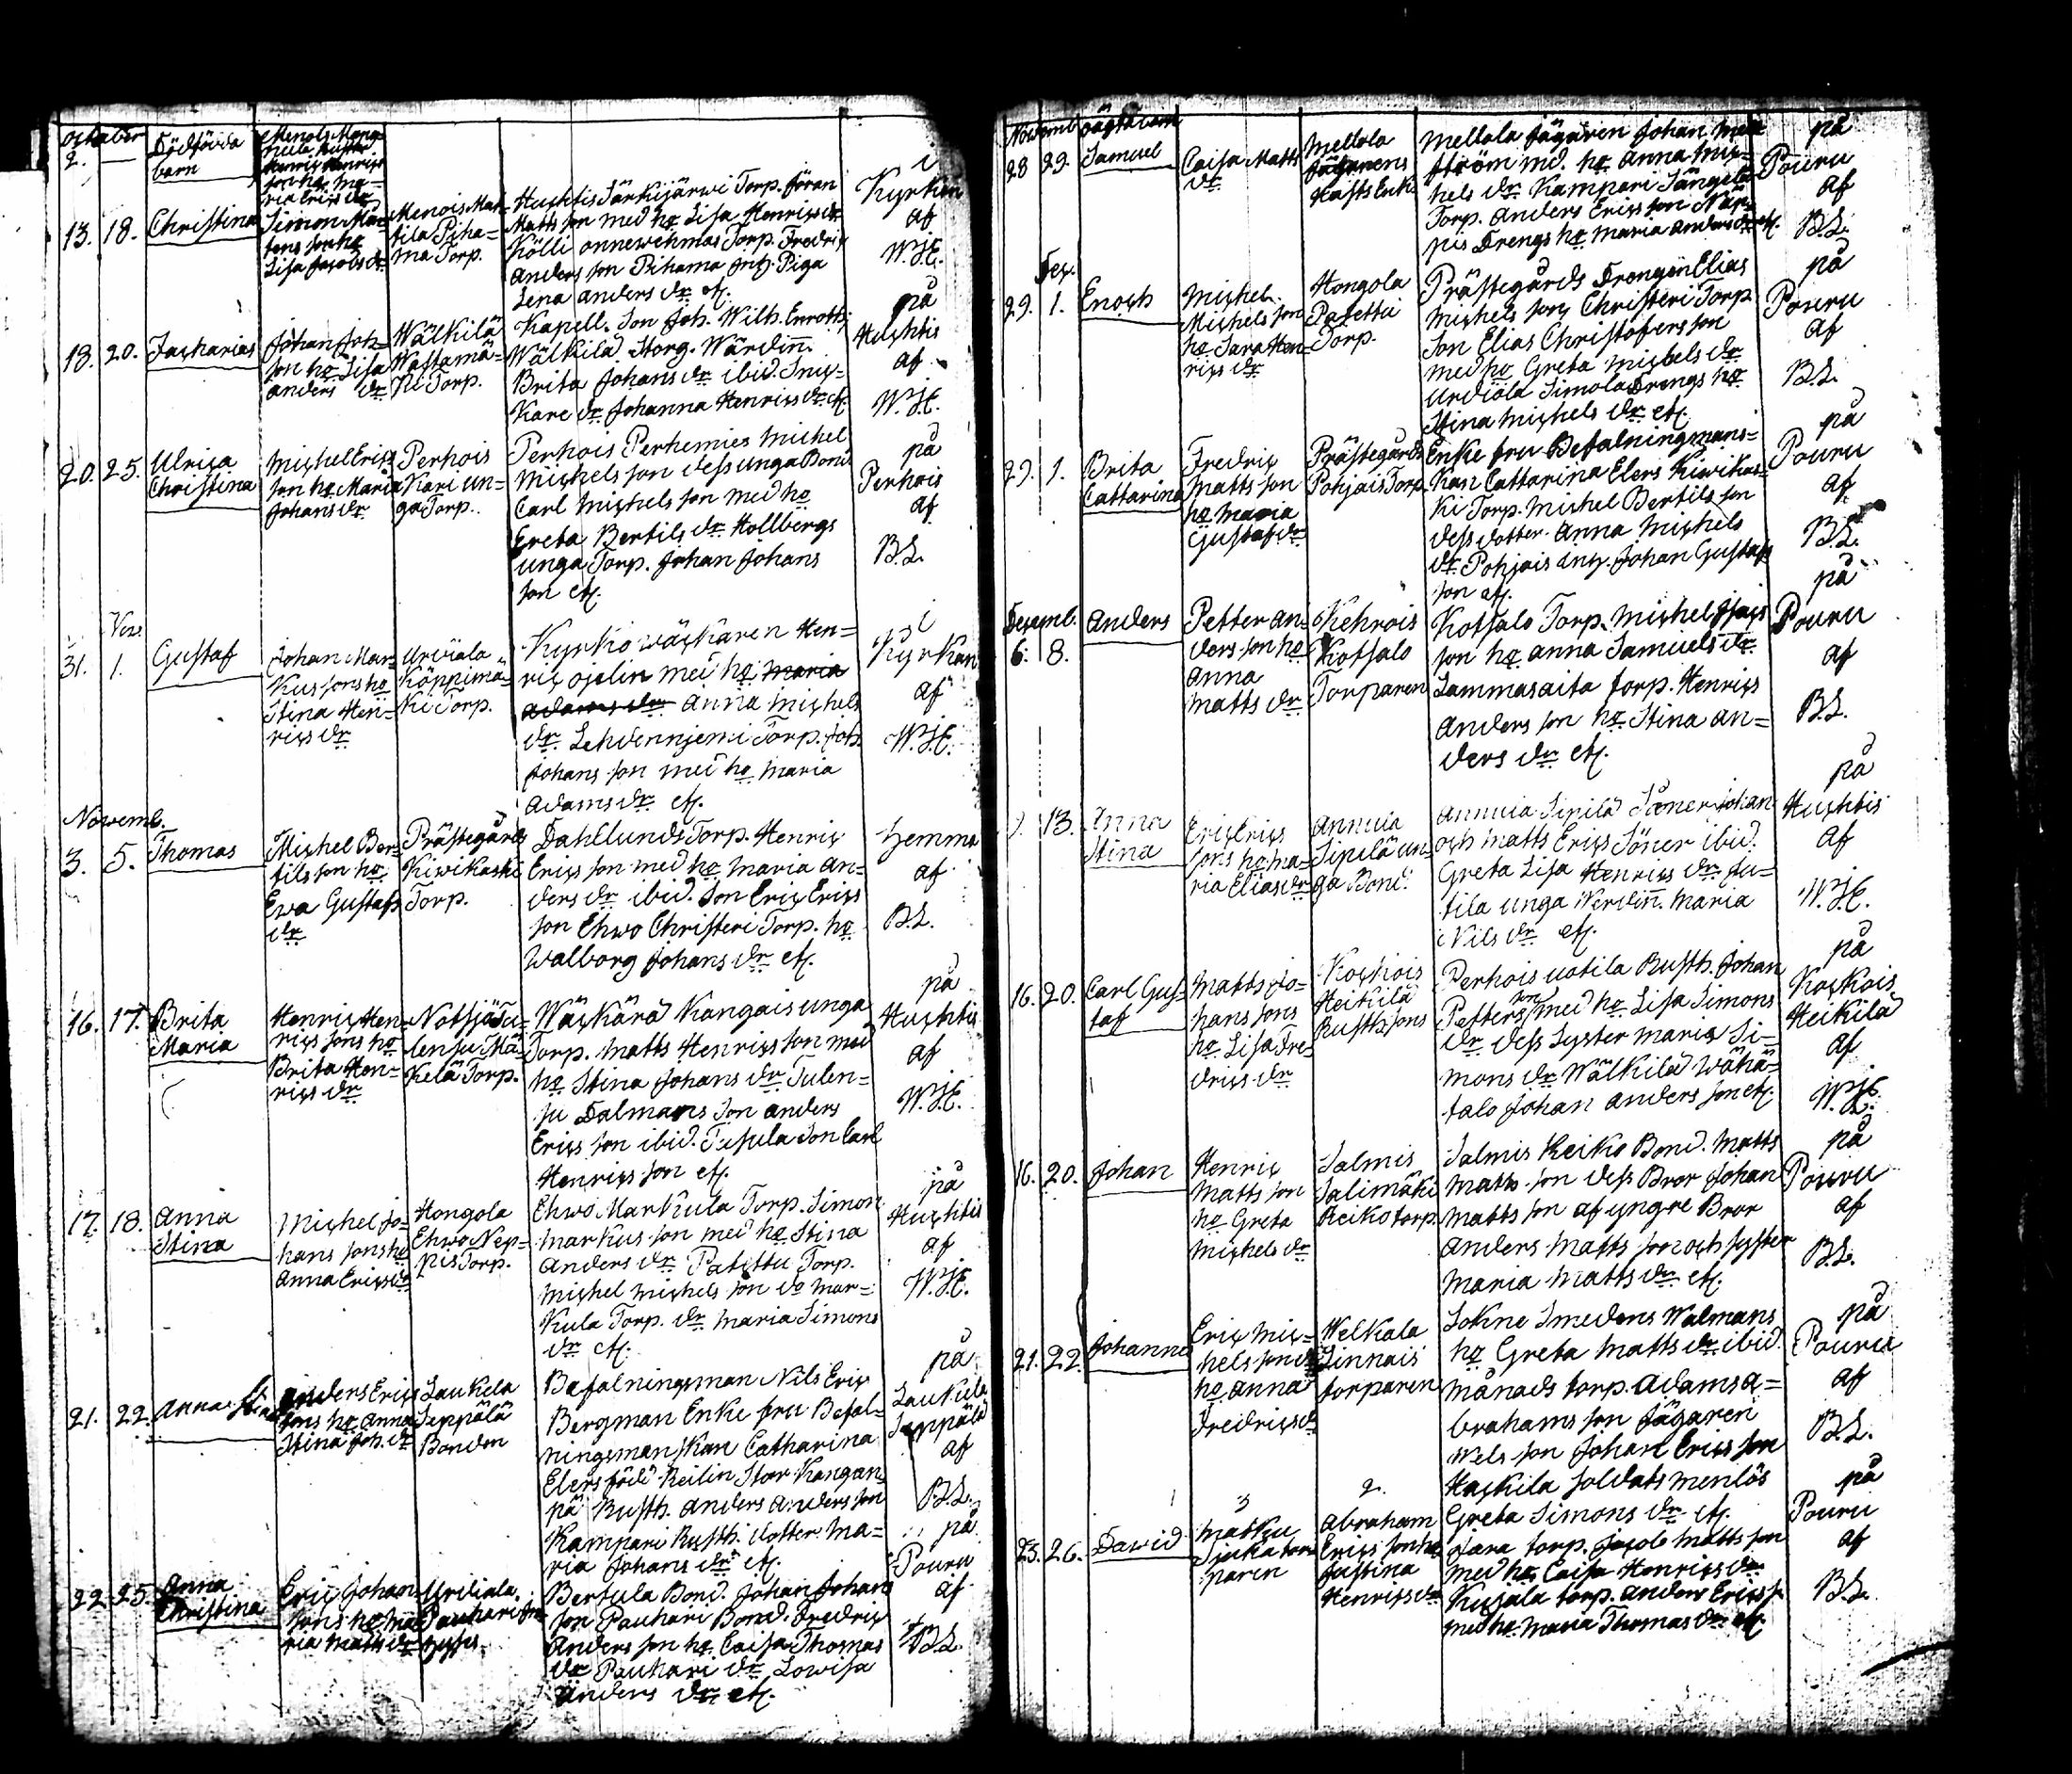 october
2. — Dödfödda
barn
Menois Mang-
neila Rusth.
Henriç Henriçs
son ho Ma-
ria Eriçs dr
13. 18. Christina
Simon Mår-
tens son ho
Lisa Jacobs dr
Menois Mat-
tila Piha-
ma Torp.
Huçhtis Särkijärwi Torp. Jöran
Matts son med ho Lisa Henriçs dr
Kölli onnewehmas Torp. Fredriç
anders son Pihama Inh. Piga
Lena anders dr etç.
i
Kyrkan
af
W.H.
18. 20. Zaçharias
Johan Joh-
son ho Lisa
anders dr
Wälkilä
Wastamä-
ki Torp.
Kapell. Son Joh. Wilh. Enroth;
Wälkilä Storg. Wärdinn.
Brita Johans dr ibid. Sniç-
kare dr Johanna Henriçs dr etç.
på
Huçhtis
af
W.H.
20. 25. Ulriça
Christina
Miçhel Eriçs
son ho Maria
Johans dr
Perhois
Kari un-
ga Torp.
Perhois Perhemies Miçhel
Miçhels son dess unga Bond
Carl Miçhels son med ho
Greta Bertils dr Hollbergs
unga Torp. Johan Johans
son etç.
på
Perhois
af
B.L.
Nov.
31. 1. Gustaf
Johan Mar-
kus sons ho
Stina Hen-
riçs dr
Urdiala
Köppimä-
ki Torp.
Kyrkowäçkaren Hen=
riç ojelin med ho maria
adams dr anna miçhels
dr Lehdenniemi Torp. Joh.
Johans son med ho maria
adams dr etç.
i
Kyrkan
af
W.H.
Novemb.
3. 5. Thomas
Miçhel Ber-
tils son ho
Ewa Gustafs
dr
Prästegårds
Kiwikaski
Torp.
Dahllunds Torp. Henriç
Eriçs son med ho maria an-
ders dr ibid. Son Eriç Eriçs
son Ehwo Christeri Torp. ho
Walborg Johans dr etç.
hemma
af
B.L.
16. 17. Brita
Maria
Henriç Hen-
riçs sons ho
Brita Hen-
riçs dr
Notsjö Tu-
lensu Mä-
kelä Torp.
Wäçkärä Kangais unga
Torp. Matts Henriçs son med
ho Stina Johans dr Tulen=
su Dalmans son anders
Eriçs son ibid. Tusula Son Carl
Henriçs son etç.
på
Huçhtis
af
W.H.
17. 18. anna
Stina
Miçhel Jo-
hans sons ho
anna Eriçs dr
Hongola
Ehwo Nep-
pis Torp.
Ehwo Markula Torp. Simon
Markus son med ho Stina
anders dr Patettu Torp.
Miçhel miçhels son do Mar-
kula Torp. dr maria Simons
dr etç.
på
Huçhtis
af
W.H.
21. 22. Anna Stina
anders Eriçs
sons ho anna
Stina Joh. dr
Laukela
Seppälä
Bonden
Befalningsman Nils Eriç
Bergman Enke fru Befal-
ningsmanskan Catharina
Elers född Reilin Stor Kangan-
pä Rusth. anders anders son
Kampari Rusth. dotter Ma=
ria Johans dr etç.
på
Laukela
Seppälä
af
B.L.
22. 25. Anna
Christina
Eriç Johan
sons ho Ma-
ria matts dr
Urdiala
Pauhari
Bertula Bond. Johan Johans
son Pauhari Bond. Fredriç
anders son ho Caisa Thomas
dr Pauhari dr Lowisa
anders dr etç.
på
Pouru
af
B.L.
Novemb.
28 29. Samuel
Caisa Matts
dr
Mellola
Jägarens
Enk
Mellola Jägaren Johan Mell
ström md. ho anna Miç-
hels dr Kampari Sängelä
Torp. anders Eriçs son Näp-
pis Drengs ho Maria anders dr etç.
på
Pouru
af
B.L.
Deç.
29. 1. Enoçh
Miçhel
Miçhels son
ho Sara Hen-
riçs dr
Hongola
Patettu
Torp.
Prästegårds Drengen Elias
Miçhels son; Christeri Torp
son Elias Christofers son
med ho Greta miçhels dr
urdiala Simola Drengs ho
Stina miçhels dr etç.
på
Pouru
af
B.L.
29. 1. Brita
Cattarina
Fredriç
Matts son
ho maria
Gustafs dr
Prästegårds
Pohjais Torp.
Enke fru Befalningmans=
kan Cattarina Elers Kiwikas-
ki Torp. Miçhel Bertils son
dess dotter anna Miçhels
dr Pohjais Inh. Johan Gustafs
son etç.
på
Pouru
af
B.L.
Deçemb.
6. 8. Anders
Petter an-
ders son ho
Anna
Matts dr
Kehrois
Kotsalo
Torparen
Kotsalo Torp. Miçhel Isaçs
son ho anna Samuels dr
Lammasaita torp. Henriçs
Anders son ho Stina an=
ders dr etç.
på
Pouru
af
B.L.
13. Anna
Stina
Eriç Eriçs
sons ho ma-
ria Elias dr
Annuia
Sipilä un-
ga Bond.
annuia Sipilä Söner Johan
och matts Eriçs Söner ibid.
Greta Lisa Henriçs dr Ju-
tila unga Werdinn. Maria
Nils dr etç.
på
Huçhtis
af
W.H.
16. 20. Carl Gus-
taf
Matts Jo-
hans sons
ho Lisa Fre-
driçs dr
Koçkois
Heikilä
Rusth. sons
Perhois uotila Rusth. Johan
Petters son med ho Lisa Simons
dr dess Syster maria Si-
mons dr Wälkilä Wähä-
talo Johan anders son etç.
på
Koçkois
Heikilä
af
W.H.
16. 20. Johan
Henriç
Matts son
ho Greta
Miçhels dr
Salmis
Salimäki
Reiko torp.
Salmis Reiko Bond. Matts
Matts son dess Bror Johan
Matts son af yngre Bror
Anders Matts son och syster
Maria Matts dr etç.
på
Pouru
af
B.L.
21. 22. Johanna
Eriç Miç-
hels son
ho anna
Fredriçs dr
Welkala
Linnais
torparen
Sokne Smedens Walmans
ho Greta Matts dr ibid.
månads torp. Adams A=
brahams son Jägaren
Nels son Johan Eriçs son
Haçkila soldats menlös
Greta Simons dr etç.
på
Pouru
af
B.L.
3 2.
23. 26. Dawid
Matku
torparen
Abraham
Eriçs son ho
Justina
Henriçs dr
Ojara torp. Jaçob Matts son
med ho Caisa Henriçs dr
Kujala torp. anders Eriçs s.
med ho Maria Thomas dr etç.
på
Pouru
af
B.L.